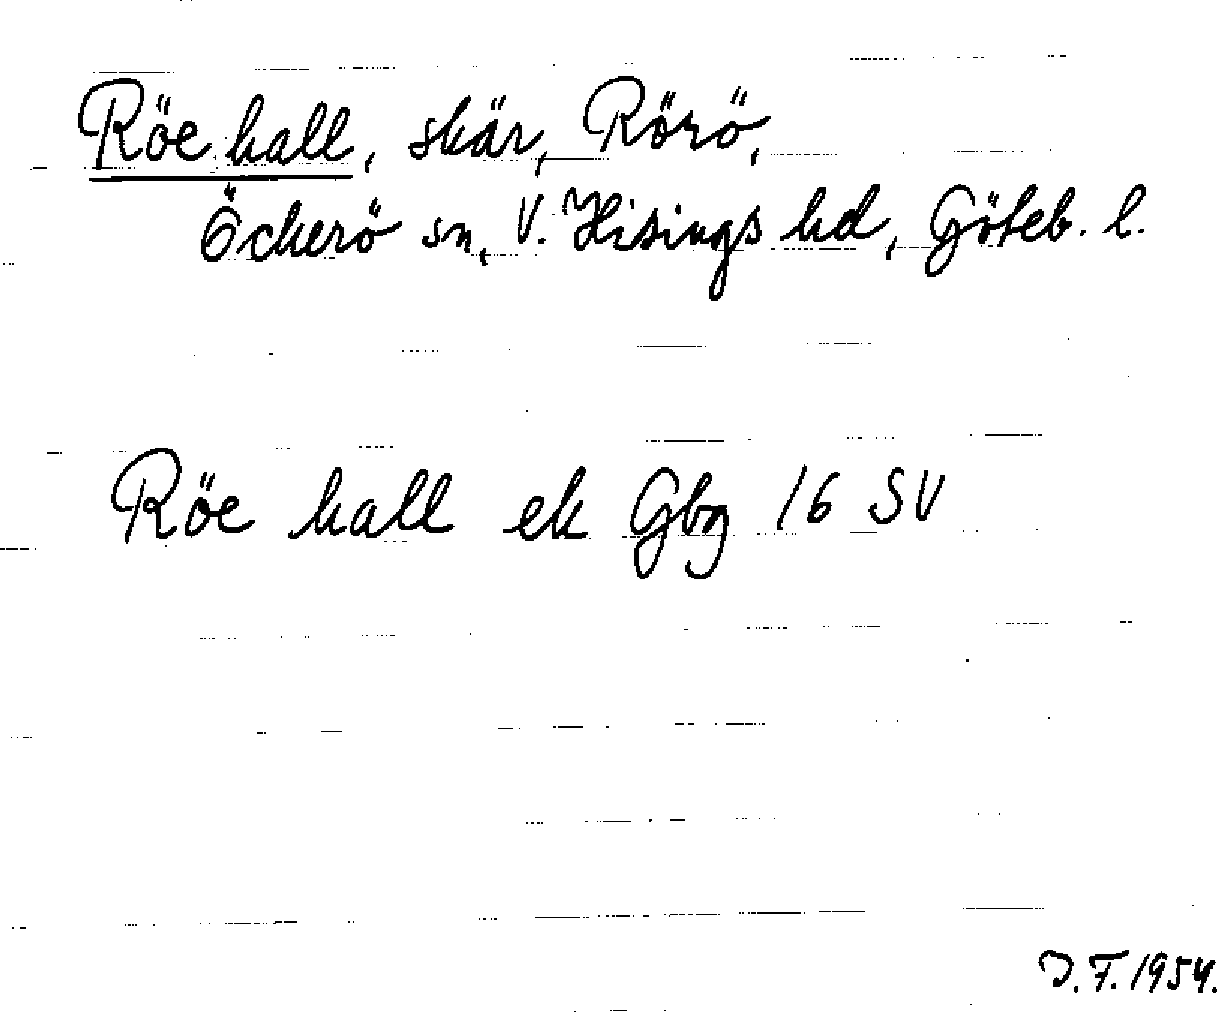 Röe kall, skär, Rörö,
Öckerö sn, V. Hisings hd, Göteb. l.
Röe kall ek Gbg 16 SV
D.F. 1954.